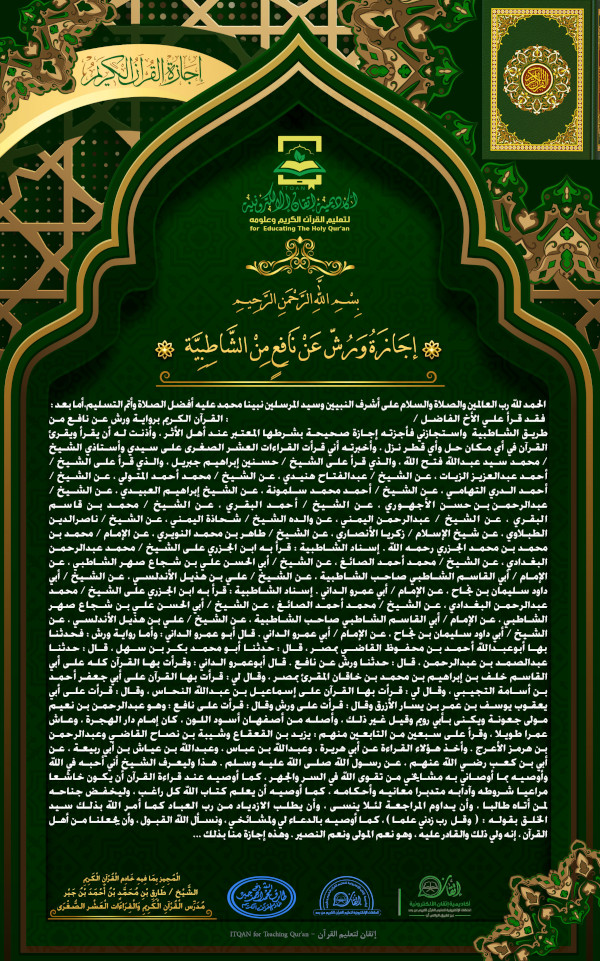 إجازة القرآن الكريم
ITQAN
أكاديمية إتقان الإلكترونية
لتعليم القرآن الكريم وعلومه
for Educating The Holy Qur'an
بِسْمِ اللَّهِ الرَّحْمَنِ الرَّحِيمِ
إِجَازَةُ وَرْشٍ عَنْ نَافِعٍ مِنْ الشَّاطِبِيَّة
الحمد لله رب العالمين والصلاة والسلام على أشرف النبيين وسيد المرسلين نبينا محمد عليه أفضل الصلاة وأتم التسليم،أما بعد :
فقد قرأ علي الأخ الفاضل / : القرآن الكريم برواية ورش عن نافع من
طريق الشاطبية واستجازني فأجزته إجازة صحيحة بشرطها المعتبر عند أهل الأثر . وأذنت له أن يقرأ ويقرئ
القرآن في أي مكان حل وأي قطر نزل . وأخبرته أني قرأت القراءات العشر الصغرى على سيدي وأستاذي الشيخ
/ محمد سيد عبدالله فتح الله . والذي قرأ على الشيخ / حسنين إبراهيم جبريل . والذي قرأ على الشيخ /
أحمد عبدالعزيز الزيات . عن الشيخ / عبدالفتاح هنيدي . عن الشيخ / محمد أحمد المتولي . عن الشيخ /
أحمد الدري التهامي . عن الشيخ / أحمد محمد سلمونة . عن الشيخ إبراهيم العبيدي . عن الشيخ /
عبدالرحمن بن حسن الأجهوري . عن الشيخ / أحمد البقري . عن الشيخ / محمد بن قاسم
البقري . عن الشيخ / عبدالرحمن اليمني . عن والده الشيخ / شحاذة اليمني . عن الشيخ / ناصرالدين
الطبلاوي . عن شيخ الإسلام / زكريا الأنصاري . عن الشيخ / طاهر بن محمد النويري . عن الإمام / محمد بن
محمد بن محمد الجزري رحمه الله . إسناد الشاطبية : قرأ به ابن الجزري على الشيخ / محمد عبدالرحمن
البغدادي . عن الشيخ / محمد أحمد الصائغ . عن الشيخ / أبي الحسن علي بن شجاع صهر الشاطبي . عن
الإمام / أبي القاسم الشاطبي صاحب الشاطبية . عن الشيخ / علي بن هذيل الأندلسي . عن الشيخ / أبي
داود سليمان بن نجاح . عن الإمام / أبي عمرو الداني . إسناد الشاطبية : قرأ به ابن الجزري على الشيخ / محمد
عبدالرحمن البغدادي . عن الشيخ / محمد أحمد الصائغ . عن الشيخ / أبي الحسن علي بن شجاع صهر
الشاطبي . عن الإمام / أبي القاسم الشاطبي صاحب الشاطبية . عن الشيخ / علي بن هذيل الأندلسي . عن
الشيخ / أبي داود سليمان بن نجاح . عن الإمام / أبي عمرو الداني . قال أبو عمرو الداني : وأما رواية ورش : فحدثنا
بها أبوعبدالله أحمد بن محفوظ القاضي بمصر . قال : حدثنا أبو محمد بكر بن سهل . قال : حدثنا
عبدالصمد بن عبدالرحمن . قال : حدثنا ورش عن نافع . قال أبوعمرو الداني : وقرأت بها القرآن كله على أبي
القاسم خلف بن إبراهيم بن محمد بن خاقان المقرئ بمصر . وقال لي : قرأت بها القرآن على أبي جعفر أحمد
بن أسامة التجيبي . وقال لي : قرأت بها القرآن على إسماعيل بن عبدالله النحاس . وقال : قرأت على أبي
يعقوب يوسف بن عمر بن يسار الأزرق وقال : قرأت على ورش وقال : قرأت على نافع : وهو عبدالرحمن بن نعيم
مولى جعونة ويكنى بأبي رويم وقيل غير ذلك . وأصله من أصفهان أسود اللون . كان إمام دار الهجرة . وعاش
عمرا طويلا . وقرأ على سبعين من التابعين منهم : يزيد بن القعقاع وشيبة بن نصاح القاضي وعبدالرحمن
بن هرمز الأعرج . وأخذ هؤلاء القراءة عن أبي هريرة . وعبدالله بن عباس . وعبدالله بن عياش بن أبي ربيعة . عن
أبي بن كعب رضي الله عنهم . عن رسول الله صلى الله عليه وسلم . هذا وليعرف الشيخ أني أحبه في الله
وأوصيه بما أوصاني به مشايخي من تقوى الله في السر والجهر . كما أوصيه عند قراءة القرآن أن يكون خاشعا
مراعيا شروطه وآدابه متدبرا معانيه وأحكامه . كما أوصيه أن يعلم كتاب الله كل راغب . وليخفض جناحه
لمن أتاه طالبا . وأن يداوم المراجعة لئلا ينسى . وأن يطلب الازدياد من رب العباد كما أمر الله بذلك سيد
الخلق بقوله : ( وقل رب زدني علما ) . كما أوصيه بالدعاء لي ولمشائخي . ونسأل الله القبول . وأن يجعلنا من أهل
القرآن . إنه ولي ذلك والقادر عليه . وهو نعم المولى ونعم النصير . وهذه إجازة منا بذلك ...
المُجِيز بِمَا فِيهِ خَادِم القُرْآنِ الكَرِيمِ
الشَّيْخُ / طَارِقُ بْنُ مُحَمَّدِ بْنِ أَحْمَدَ بْنِ جَبْر
مُدَرِّسِ القُرْآنِ الكَرِيمِ وَالقِرَاءَاتِ العَشْرِ الصُّغْرَى
إتقان
أكاديمية إتقان الإلكترونية
ITQAN for Teaching Qur'an - إتقان لتعليم القرآن